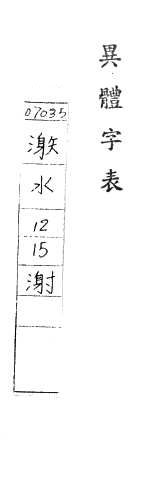 異體字表
07035
水
12
15